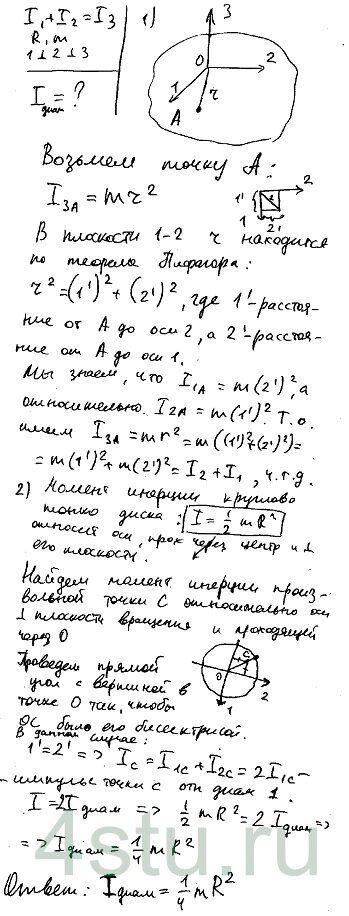 I₁ + I₂ = I₃
R, m
1 ⊥ 2 ⊥ 3
I диам = ?
1)
3
O
2
1
r
A
Возьмем точку A:
I₃A = mr²
2
1'
1
2'
В плоскости 1-2 r находится
по теореме Пифагора:
r² = (1')² + (2')², где 1' - расстоя-
ние от A до оси 2, а 2' - расстоя-
ние от A до оси 1.
Мы знаем, что I₁A = m(2')², а
относительно I₂A = m(1')². Т.о.
имеем I₃A = mr² = m((1')² + (2')²) =
= m(1')² + m(2')² = I₂ + I₁, ч.т.д.
2) Момент инерции круглого
тонко диска: I = ½ mR²
относит оси, прох через центр и ⊥
его плоскости.
Найдем момент инерции произ-
вольной точки C относительно оси
⊥ плоскости вращения и проходящей
через O
Проведем прямой
угол с вершиной в
точке O так, чтобы
OC было его биссектрисой.
C
O
2
1
В данном случае:
1' = 2' => I_C = I₁C + I₂C = 2I₁C -
- импульс точки C отн диам 1.
I = 2I диам => ½ mR² = 2 I диам =>
=> I диам = ¼ mR²
4stu.ru
Ответ: I диам = ¼ mR²